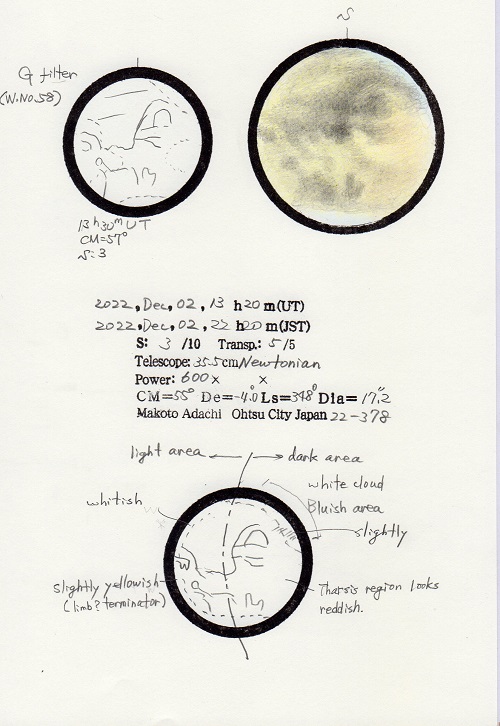 S
G filter
(W.No.58)
13h30m UT
CM=57°
S:3
2022, Dec, 02, 13 h20 m(UT)
2022, Dec, 02, 22 h20 m(JST)
S: 3 /10 Transp.: 5/5
Telescope: 35.5cm Newtonian
Power: 600× ×
CM=55° De=-4.0 Ls=348° Dia= 17.2"
Makoto Adachi Ohtsu City Japan 22-378
light area dark area
white cloud
whitish Bluish area
slightly
W
slightly yellowish
(limb? terminator)
Tharsis region looks
reddish.